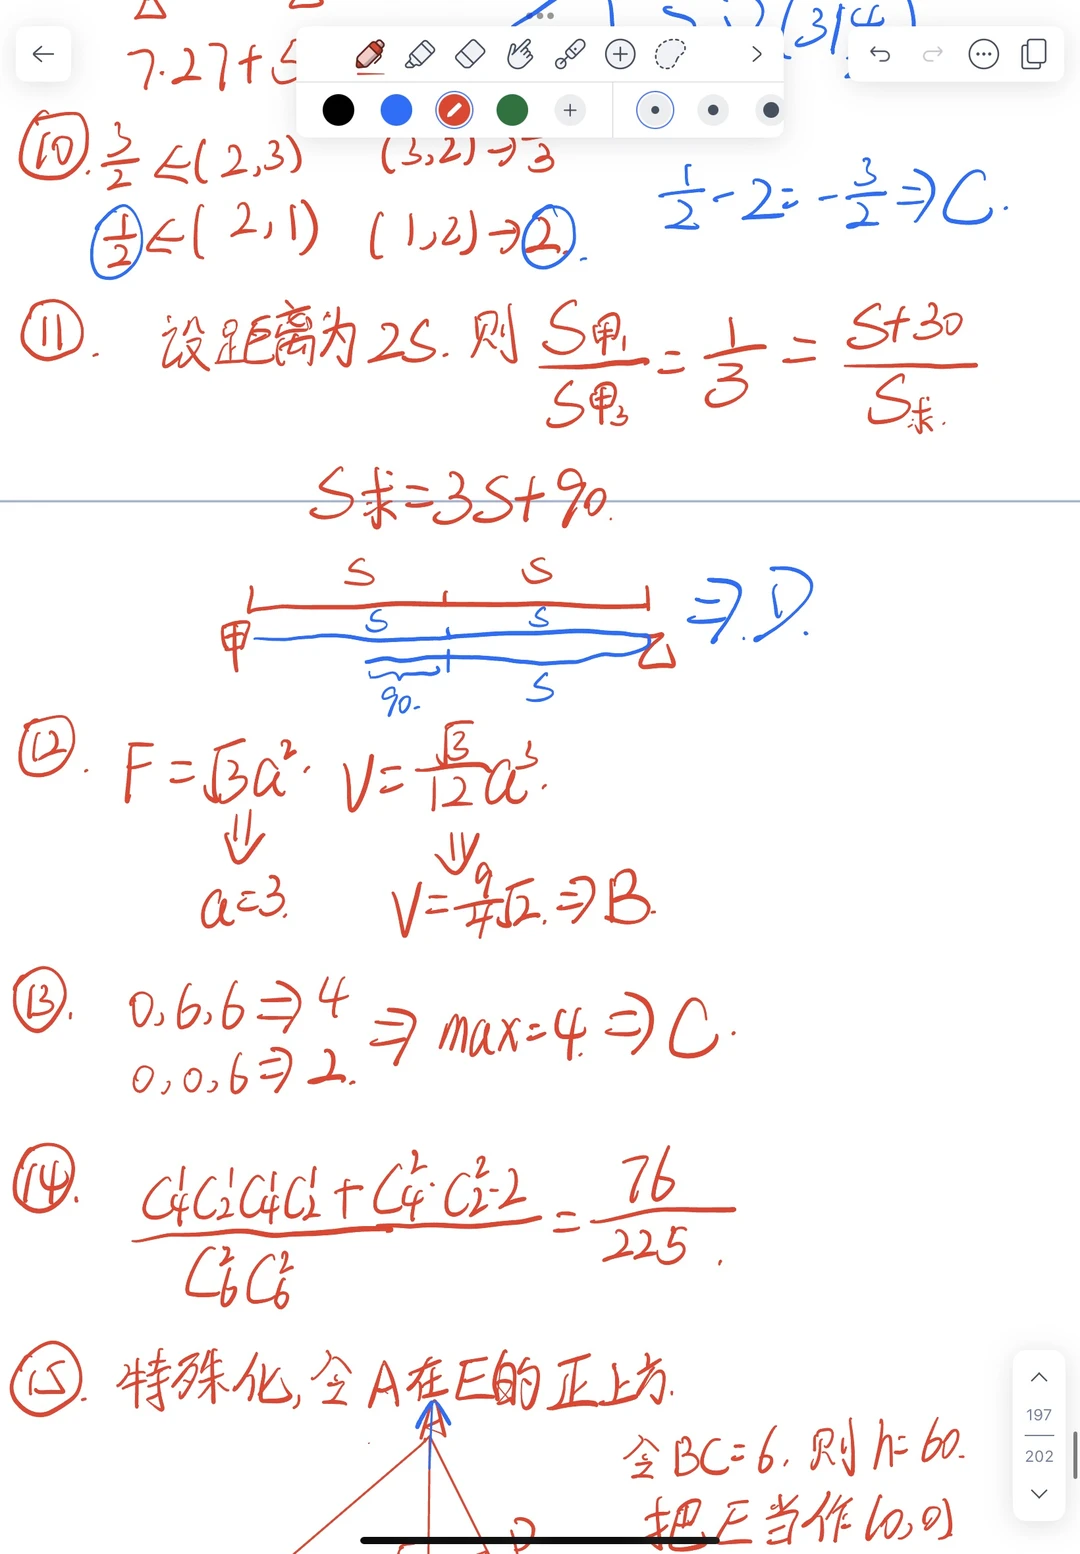 7.27+
(3|4)
⑩. 3/2 ←(2,3) (3,2)→
1/2 ←(2,1) (1,2)→2.
1/2-2=-3/2⇒C.
⑪. 设距离为2S.则 S甲₁/S甲₃=1/3=(S+30)/S求.
S求=3S+90.
S S
S S
甲 ⇒.D.
90. S
⑫. F=√3a². V=√3/12 a³.
⇓ ⇓
a=3. V=9/4√2.⇒B.
⑬. 0,6,6⇒4
0,0,6⇒2.
⇒max=4.⇒C.
⑭. (C₄¹C₂¹C₄¹C₂¹+C₄²·C₂²·2)/(C₆²C₆²)=76/225.
⑮. 特殊化,令A在E的正上方.
A
令BC=6.则h=60.
把E当作(0,0)
D
197
202